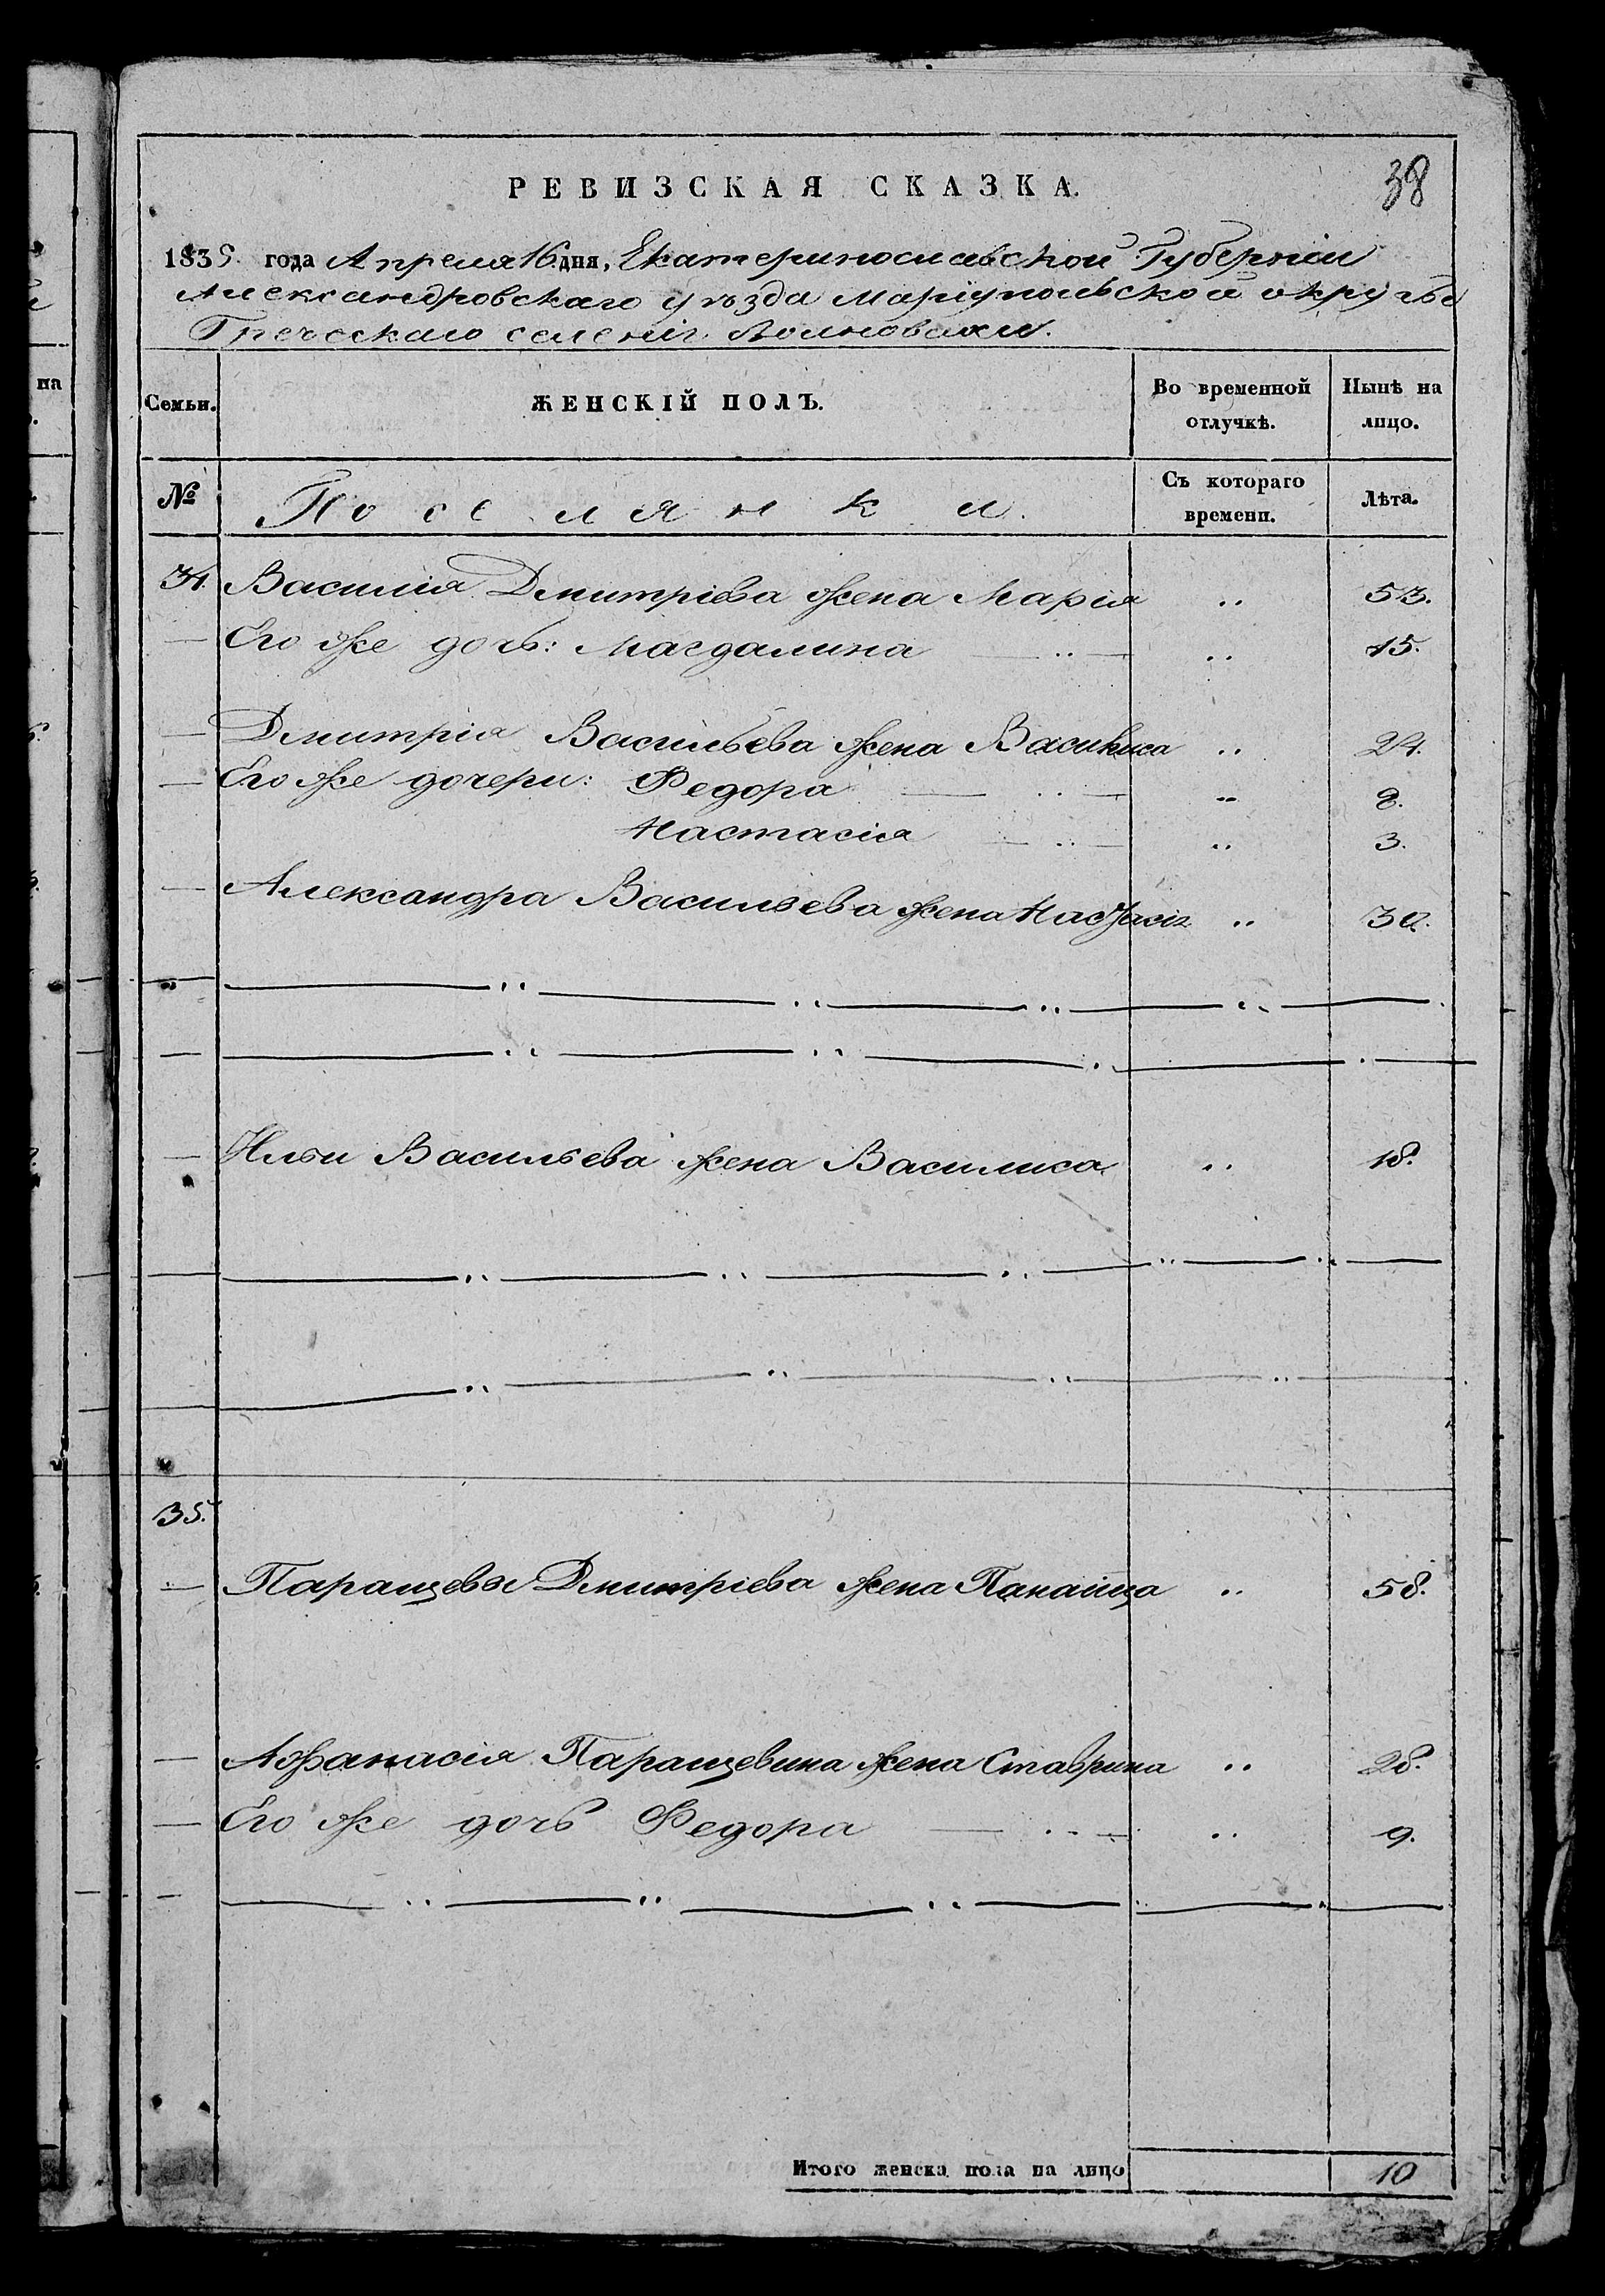 РЕВИЗСКАЯ СКАЗКА.
38
1835. года Апреля 16. дня, Екатеринославской Губернии
Александровскаго уѣзда Мариупольской округѣ
Греческаго селенія
Семьи.
ЖЕНСКІЙ ПОЛЪ.
Во временной отлучкѣ.
Нынѣ на лицо.
№
Поселянки.
Съ котораго времени.
Лѣта.
34. Василия Дмитріева жена Марія .. 53.
— Его же дочь: Магдалина — .. — .. 15.
— Дмитрія Васильева жена Василиса .. 24.
— Его же дочери: Федора — .. — .. 8.
Настасія — .. — .. 3.
— Александра Васильева жена Настасія .. 30.
— Ильи Васильева жена Василиса .. 18.
35.
— Паращева Дмитріева жена Панаица .. 58.
— Афанасія Паращевина жена Ставрина .. 28.
— Его же дочь Федора — .. — .. 9.
Итого женска пола на лицо 10